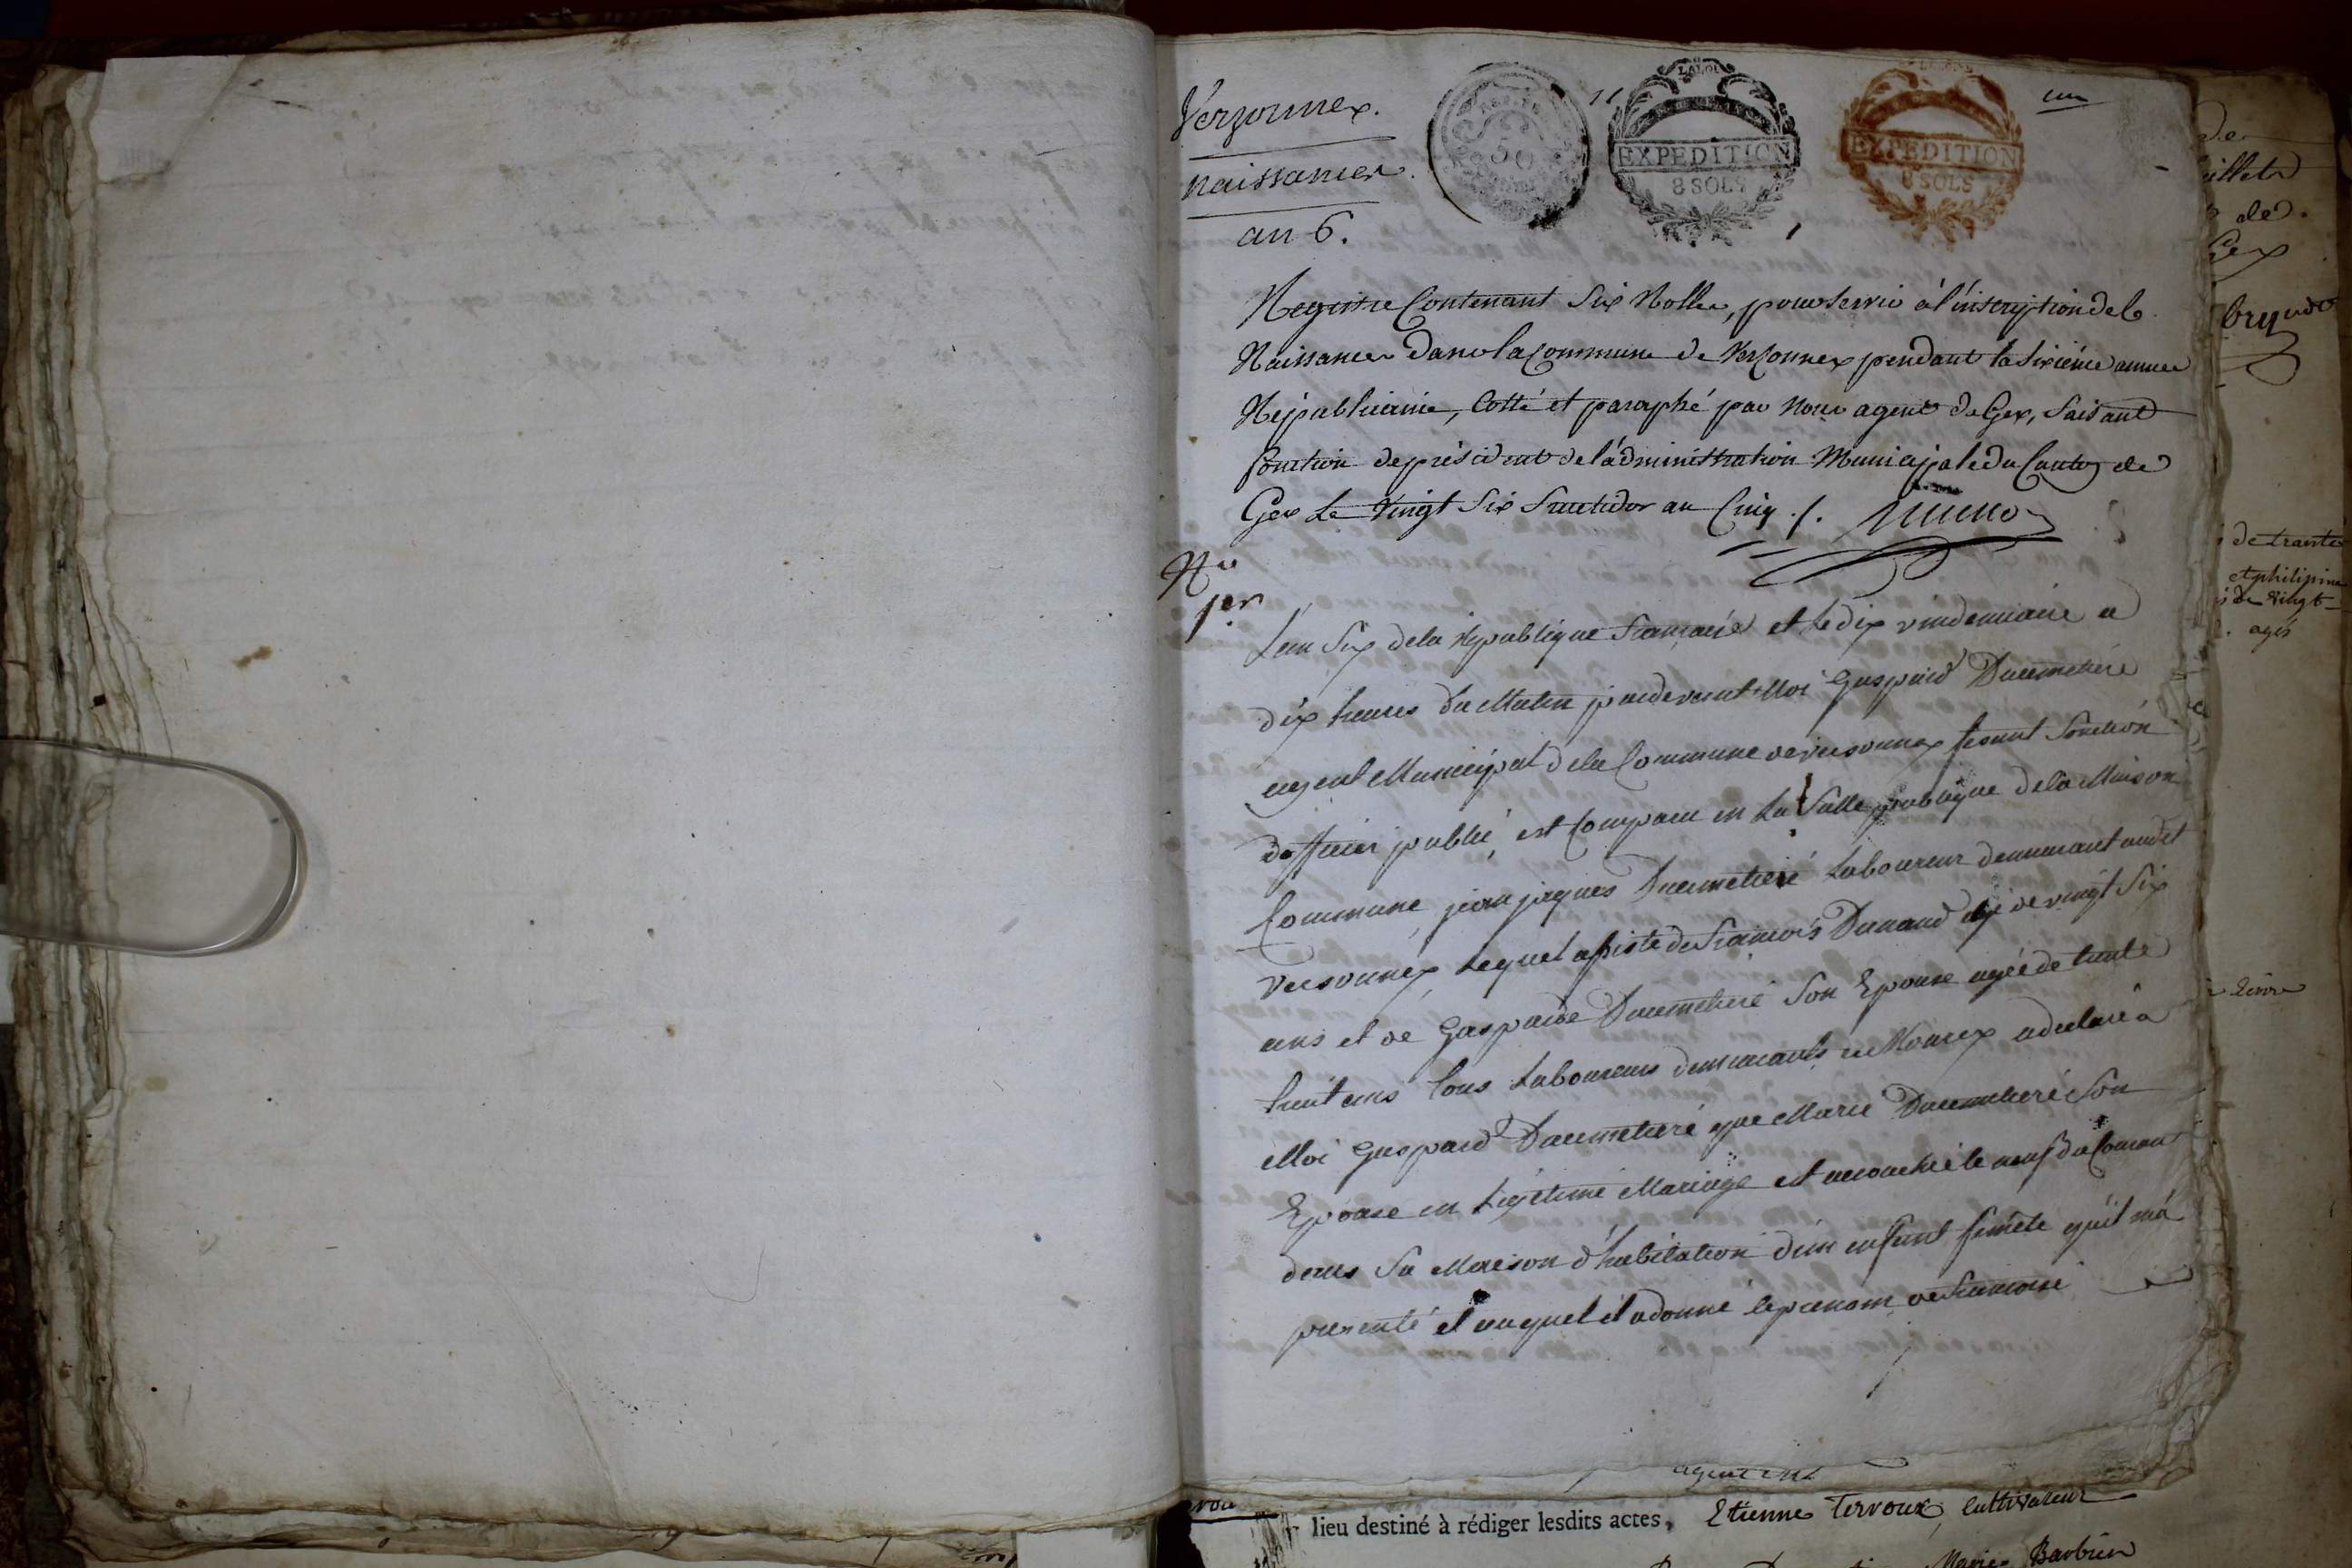 Verzonnex.
naissances.
an 6.
50
11
LA LOI
EXPEDITION
8 SOLS
EXPEDITION
8 SOLS
un
Registre Contenant Six Rolles, pour servir à l'inscription des
Naissances dans la Commune de Verzonnex pendant la sixiéme année
Républicaine, Cotté et paraphé par Nous agent de Gex, faisant
fonction de président de l'administration Municipale du Canton de
Gex Le Vingt Six fructidor an Cinq ./.
No
1er
Lan Six de la Republique francaise et le dix vindemiaire a
dix heures du Matin pardevant Moi Gaspard Ducimetiere
agent Municipal de la Commune de versonnex fesant fonction
dofficier public, est Comparu en la Salle publique de la Maison
Commune, jean jaques Ducimetiere Laboureur demeurant audit
versonnex, Lequel assisté de francois Dunand agé de vingt Six
ans et de Gasparde Ducimetiere Son Epouse agée de trente
huit ans tous Laboureurs demeurants a declaré a
Moi Gaspard Ducimetiere que Marie Ducimetiere Son
Epouse en Legitime Mariage est accouchée le neuf du Courant
dans Sa Maison d'habitation d'un enfant femele qu'il m'a
presenté et auquel il a donné le prenom de francoise
agent
lieu destiné à rédiger lesdits actes, Etienne Tervoux, Cultivateur
Marie Barbier
de
de
Gex
de trante
et philipine
de Vingt
agés